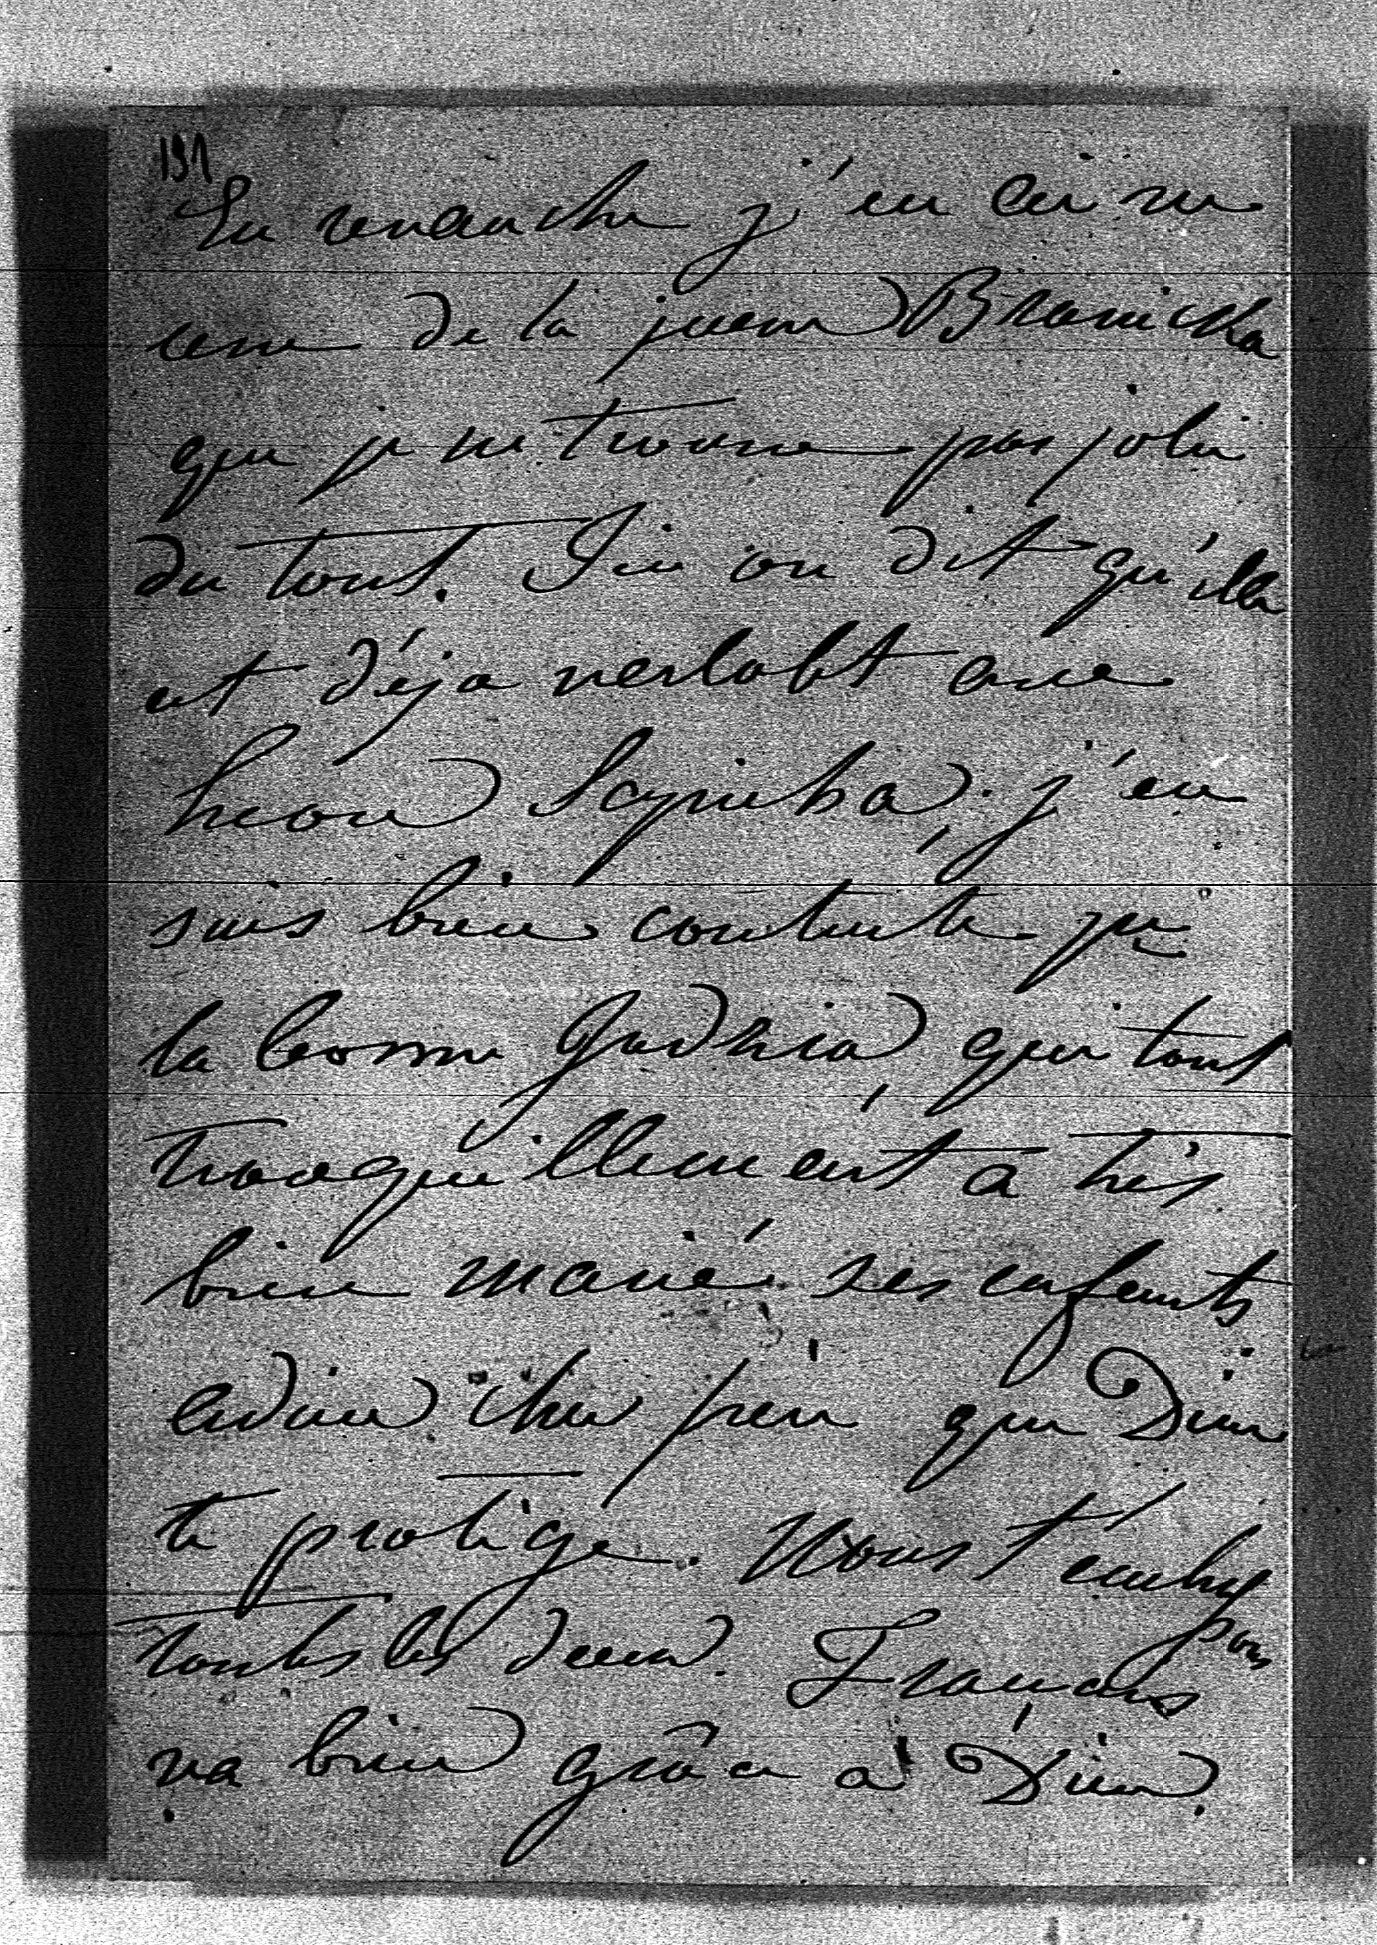 191
En revanche j'en ai une
cene de la jeune Branicka
que je ne trouve pas jolie
du tout. Ici on dit qu'elle
est déja verlobt avec
Léon Sapieha, j'en
suis bien contente pr
la bonne Jadzia, qui tout
tranquillement a très
bien marié ses enfants
adieu cher frère que Dieu
te protége. Nous t'embras
sons
toutes les deux. François
va bien grâce à Dieu.